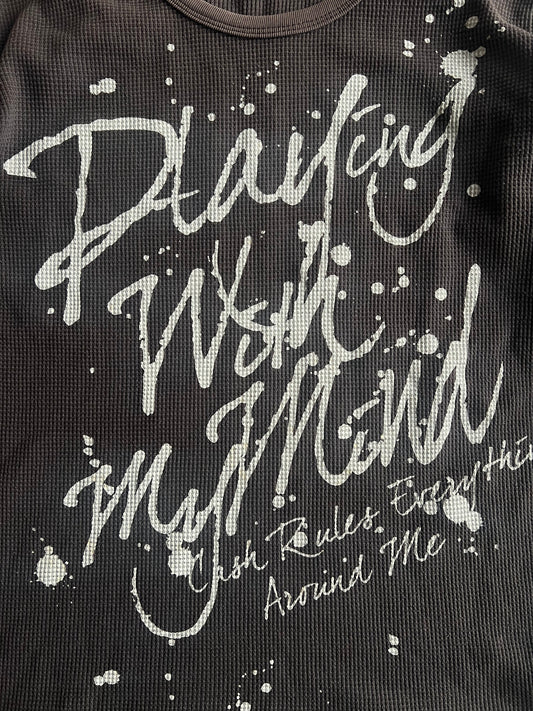 Playing
With
My Mind
Cash Rules Everythin
Around Me